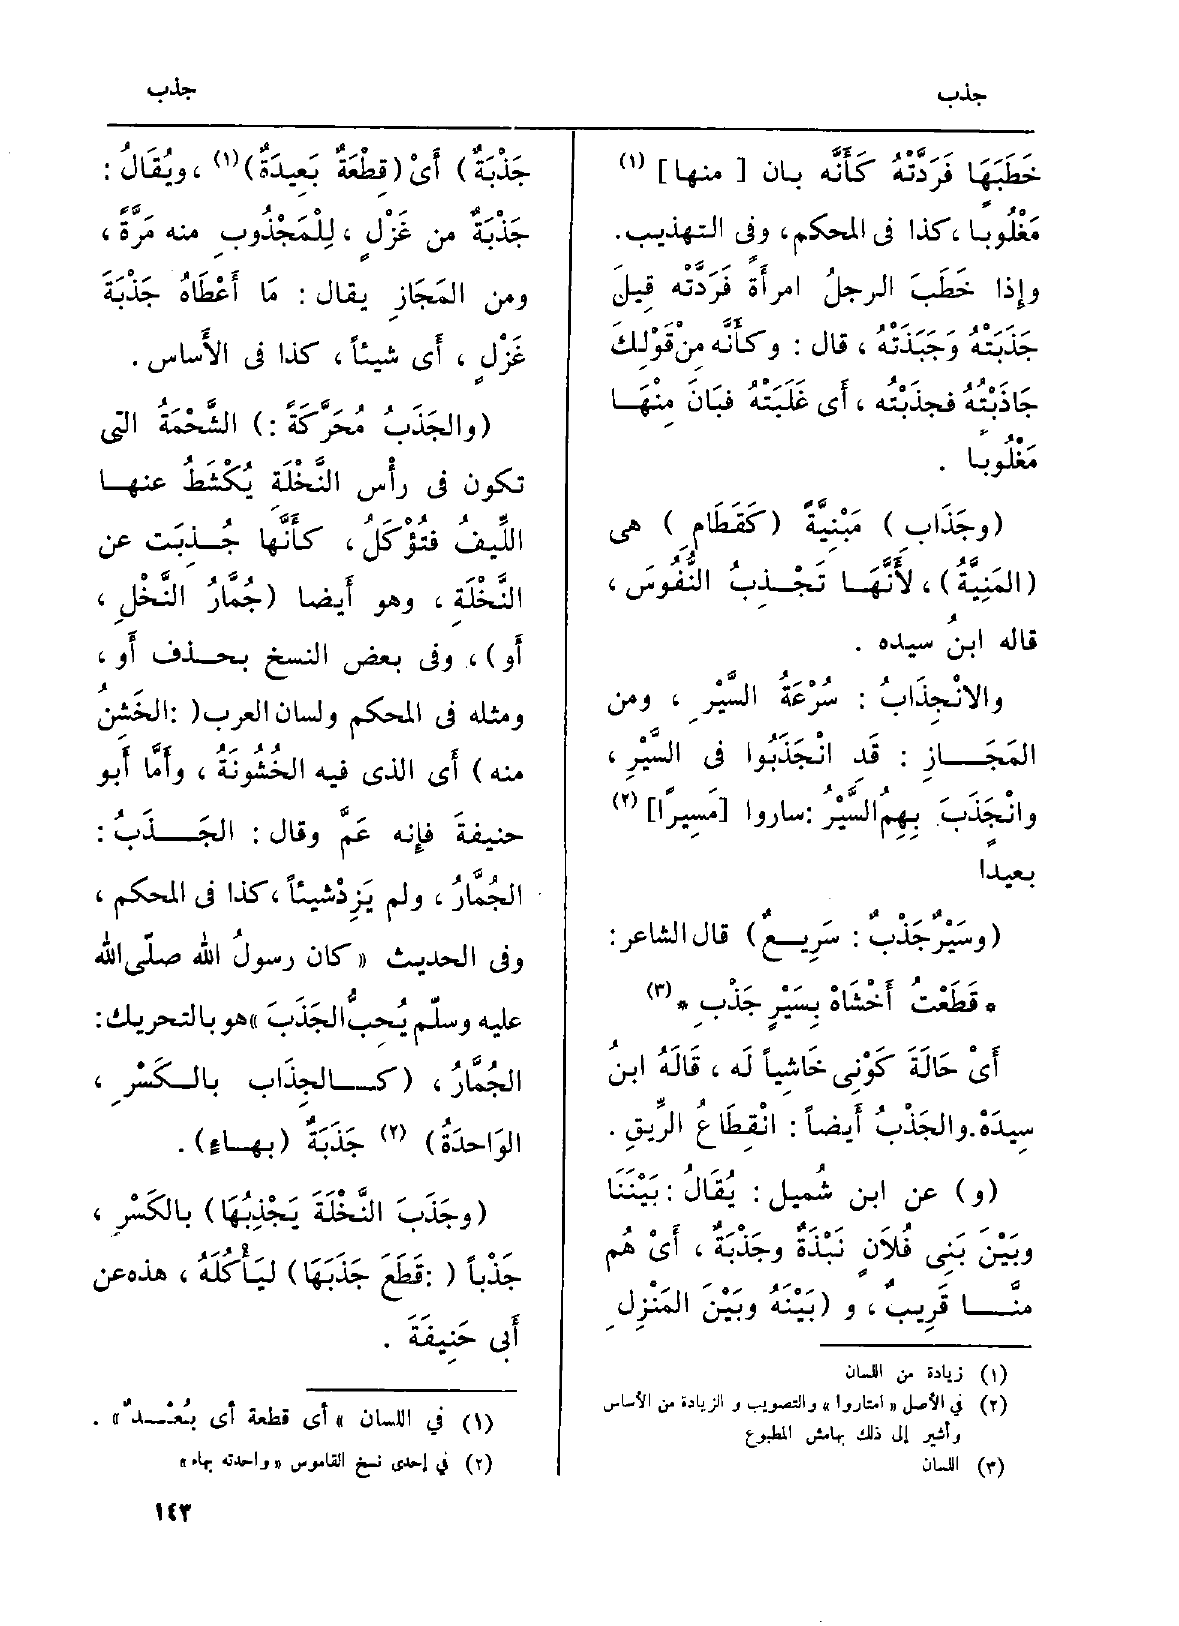 جذب
جذب
خَطَبَهَا فَرَدَّتْهُ كَأَنَّه بان [ منها ] (١)
مَغْلُوباً ، كذا فى المحكم، وفى التهذيب.
وإذا خَطَبَ الرجلُ امرأَةً فَرَدَّتْه قِيلَ
جَذَبَتْهُ وَجَبَذَتْهُ ، قال : وكأَنَّه مِنْ قَوْلِكَ
جَاذَبْتُهُ فجذَبْتُه ، أَى غَلَبْتُهُ فبَانَ مِنْهَا
مَغْلُوباً .
(وجَذَابِ) مَبْنِيَّةً (كَقَطَامِ ) هى
(المَنِيَّةُ) ، لأَنَّهَا تَجْذِبُ النُّفُوسَ ،
قاله ابنُ سيده .
والانْجِذَابُ : سُرْعَةُ السَّيْرِ ، ومن
المَجَازِ : قَد انْجَذَبُوا فى السَّيْرِ ،
وانْجَذَبَ بِهِمُ السَّيْرُ : ساروا [مَسِيرًا] (٢)
بعيدا
(وسَيْرٌ جَذْبٌ : سَرِيعٌ) قال الشاعر :
* قَطَعْتُ أَخْشَاهْ بِسَيْرٍ جَذْبِ * (٣)
أَىْ حَالَةَ كَوْنِى خَاشِياً لَه ، قَالَهُ ابنُ
سِيدَهْ. والجَذْبُ أَيضاً : انْقِطَاعُ الرِّيقِ .
(و) عن ابن شُميل : يُقَالُ : بَيْنَنَا
وبَيْنَ بَنِى فُلاَنٍ نَبْذَةٌ وجَذْبَةٌ ، أَىْ هُم
مِنَّا قَرِيبٌ ، و (بَيْنَهُ وبَيْنَ المَنْزِلِ
(١) زيادة من اللسان
(٢) فى الأصل « امتاروا » والتصويب و الزيادة من الأساس
وأشير إلى ذلك بهامش المطبوع
(٣) اللسان
جَذْبَةٌ) أَىْ (قِطْعَةٌ بَعِيدَةٌ) (١) ، ويُقَالُ :
جَذْبَةٌ من غَزْلٍ ، لِلْمَجْذُوبِ منه مَرَّةً ،
ومن المَجَازِ يقال : مَا أَعْطَاهُ جَذْبَةَ
غَزْلٍ ، أَى شيئاً ، كذا فى الأَساس .
(والجَذَبُ مُحَرَّكَةً :) الشَّحْمَةُ التى
تكون فى رأْس النَّخْلَةِ يُكْشَطُ عنها
اللِّيفُ فتُؤْكَلُ ، كأَنَّها جُذِبَت عن
النَّخْلَةِ ، وهو أَيضا (جُمَّارُ النَّخْلِ ،
أَو) ، وفى بعض النسخ بحذف أَو ،
ومثله فى المحكم ولسان العرب ( : الخَشِنُ
منه) أَى الذى فيه الخُشُونَةُ ، وأَمَّا أَبو
حنيفةَ فإِنه عَمَّ وقال : الجَذَبُ :
الجُمَّارُ ، ولم يَزِدْ شيئاً ، كذا فى المحكم ،
وفى الحديث « كان رسولُ الله صلّى الله
عليه وسلّم يُحبُّ الجَذَبَ » هو بالتحريك :
الجُمَّارُ ، (كالجِذَاب بالكَسْرِ ،
الوَاحدَةُ) (٢) جَذَبَةٌ (بهاءٍ) .
(وجَذَبَ النَّخْلَةَ يَجْذِبُهَا) بالكَسْرِ ،
جَذْباً ( : قَطَعَ جَذَبَهَا) لِيَأْكُلَهُ ، هذه عن
أَبى حَنِيفَةَ .
(١) في اللسان « أى قطعة أى بُعْدٌ » .
(٢) في إحدى نسخ القاموس « واحدته بهاء »
١٤٣